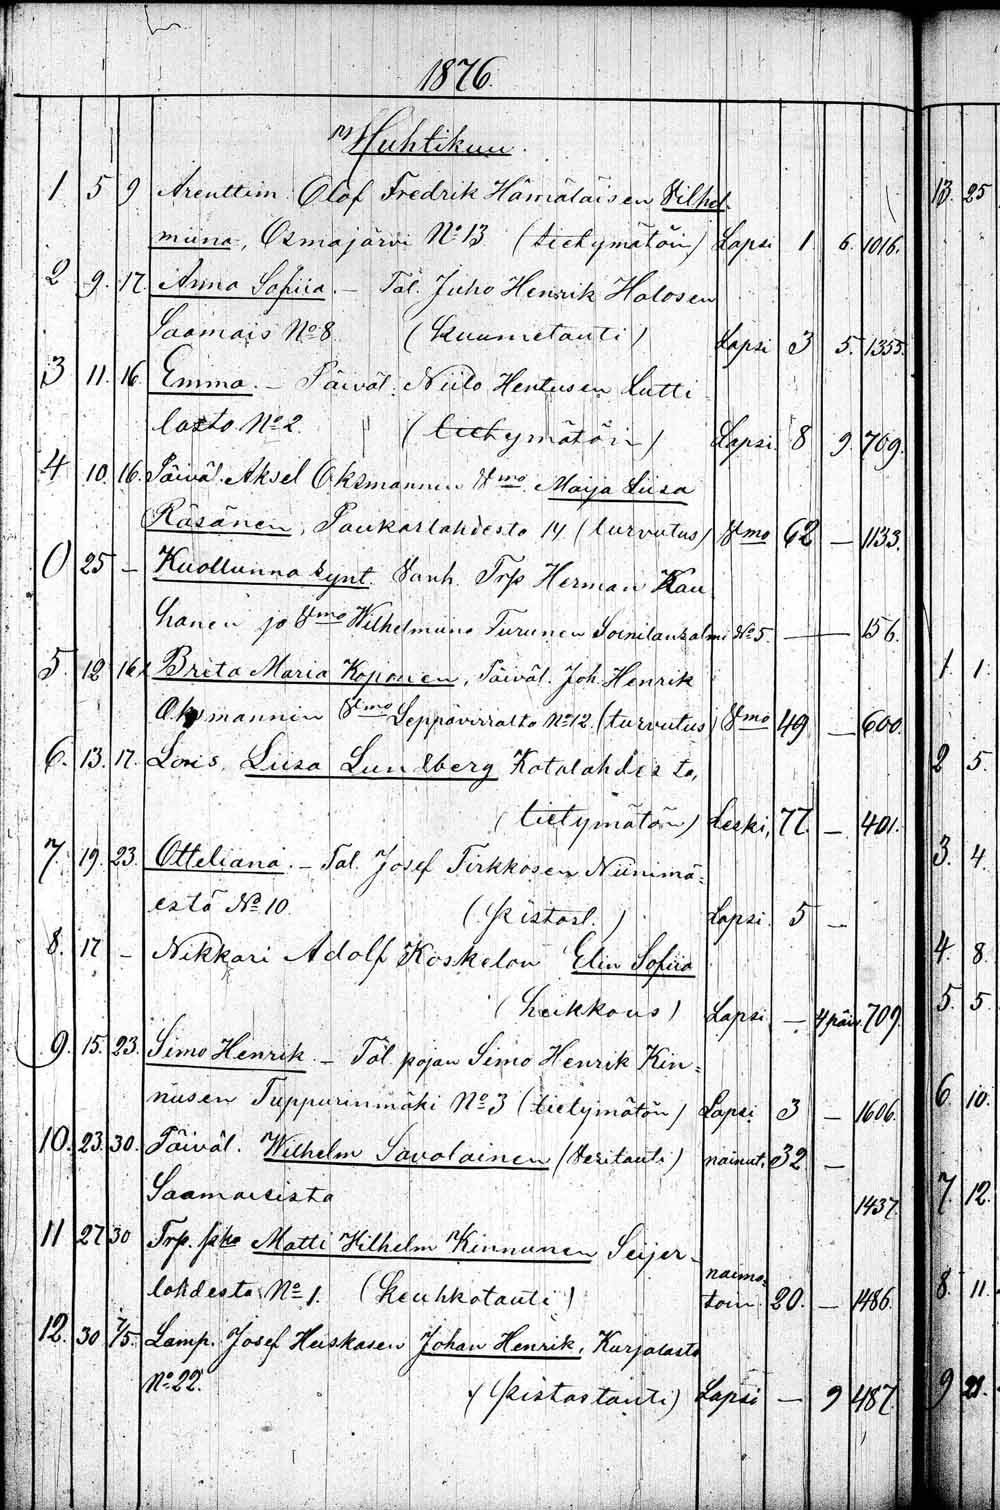 1876.
Huhtikuu.
1. 5 9 Arenttim. Olof Fredrik Hämäläisen Vilhel-
miina, Osmajärvi No 13 (tietymätöin) Lapsi 1. 6. 1016.
2 9. 17. Anna Sofiia. – Tal. Juho Henrik Halosen
Saamais No 8. (Kuumetauti) Lapsi 3 5. 1355.
3 11. 16. Emma. – Päiväl. Niilo Hentusen Lutti-
lasta No 2. (tietymätöin) Lapsi. 8 9. 709.
4 10. 16. Päiväl. Aksel Oksmannin Vmo. Maija Liisa
Räsänen, Paukarlahdesta 14. (turvutus) Vmo 62 – 1133.
0 25 – Kuolluna synt. Vanh. Trp Herman Kau-
hanen ja Vmo Wilhelmiina Turunen Soinilansalmi No 5. — 156.
5. 12 16 Brita Maria Koponen, Päiväl. Joh. Henrik
Oksmannin Vmo Leppävirralta No 12. (turvutus) Vmo 49 – 600.
6. 13. 17. Lois. Liisa Lundberg Kotalahdesta,
(tietymätöin) Leski, 77. – 401.
7. 19. 23. Otteliana. – Tal. Josef Tirkkosen Niinimä-
estä No 10. (Pistost.) Lapsi. 5 –
8. 17 – Nikkari Adolf Koskelon Elin Sofiia
(heikkous) Lapsi – 4 päiv. 709.
9. 15. 23. Simo Henrik – Tal. pojan Simo Henrik Kin-
nusen Tuppurinmäki No 3 (tietymätöin) Lapsi 3 – 1606.
10. 23. 30. Päiväl. Wilhelm Savolainen (Vesitauti) nainut. 32 –
Saamaisista 1437.
11 27 30 Trp. pka Matti Vilhelm Kinnunen Seijer-
lahdesta No 1. (Keuhkotauti) naima-
toin. 20. – 1486.
12. 30 7/5. Lamp. Josef Huskasen Johan Henrik, Kurjalasta
No 22. (Pistostauti) Lapsi – 9 487.
13. 25
1. 1.
2 5.
3. 4.
4. 8.
5. 5.
6. 10.
7. 12.
8. 11.
9 21.